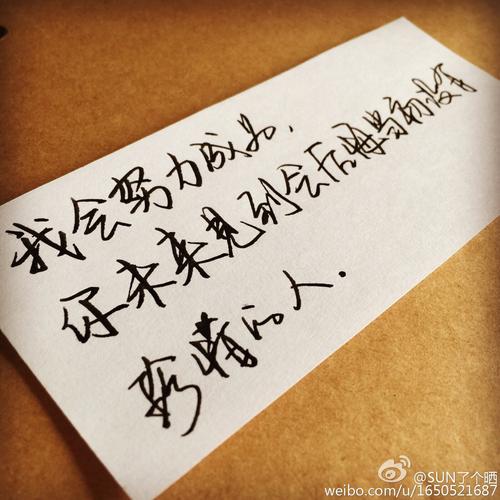 我会努力成为,
你未来见到会后悔当初没有
珍惜的人.
@SUN了个晒
weibo.com/u/1650521687